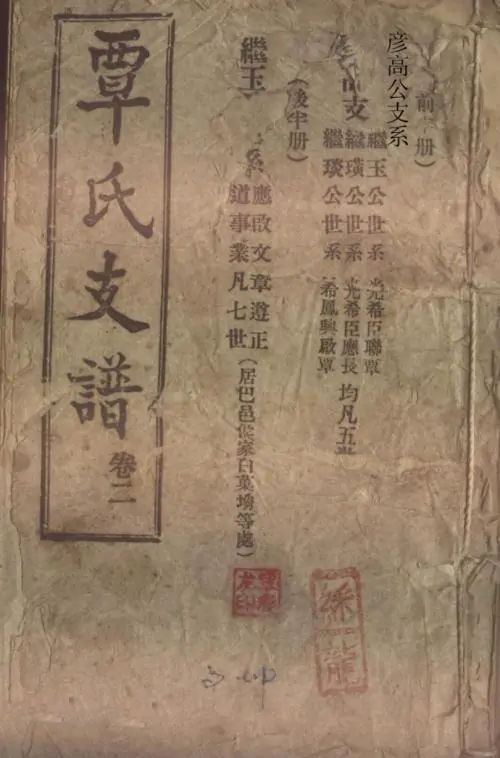 前 册）
彦高公支系
支
繼玉公世系 光希臣聯覃
繼璜公世系 光希臣應長
繼琰公世系 希鳳興啟覃
均凡五
（後半册）
繼玉 系
應啟文章遵正
道事業凡七世
（居巴邑侯家白菓塆等處）
覃氏支譜
卷二
龍